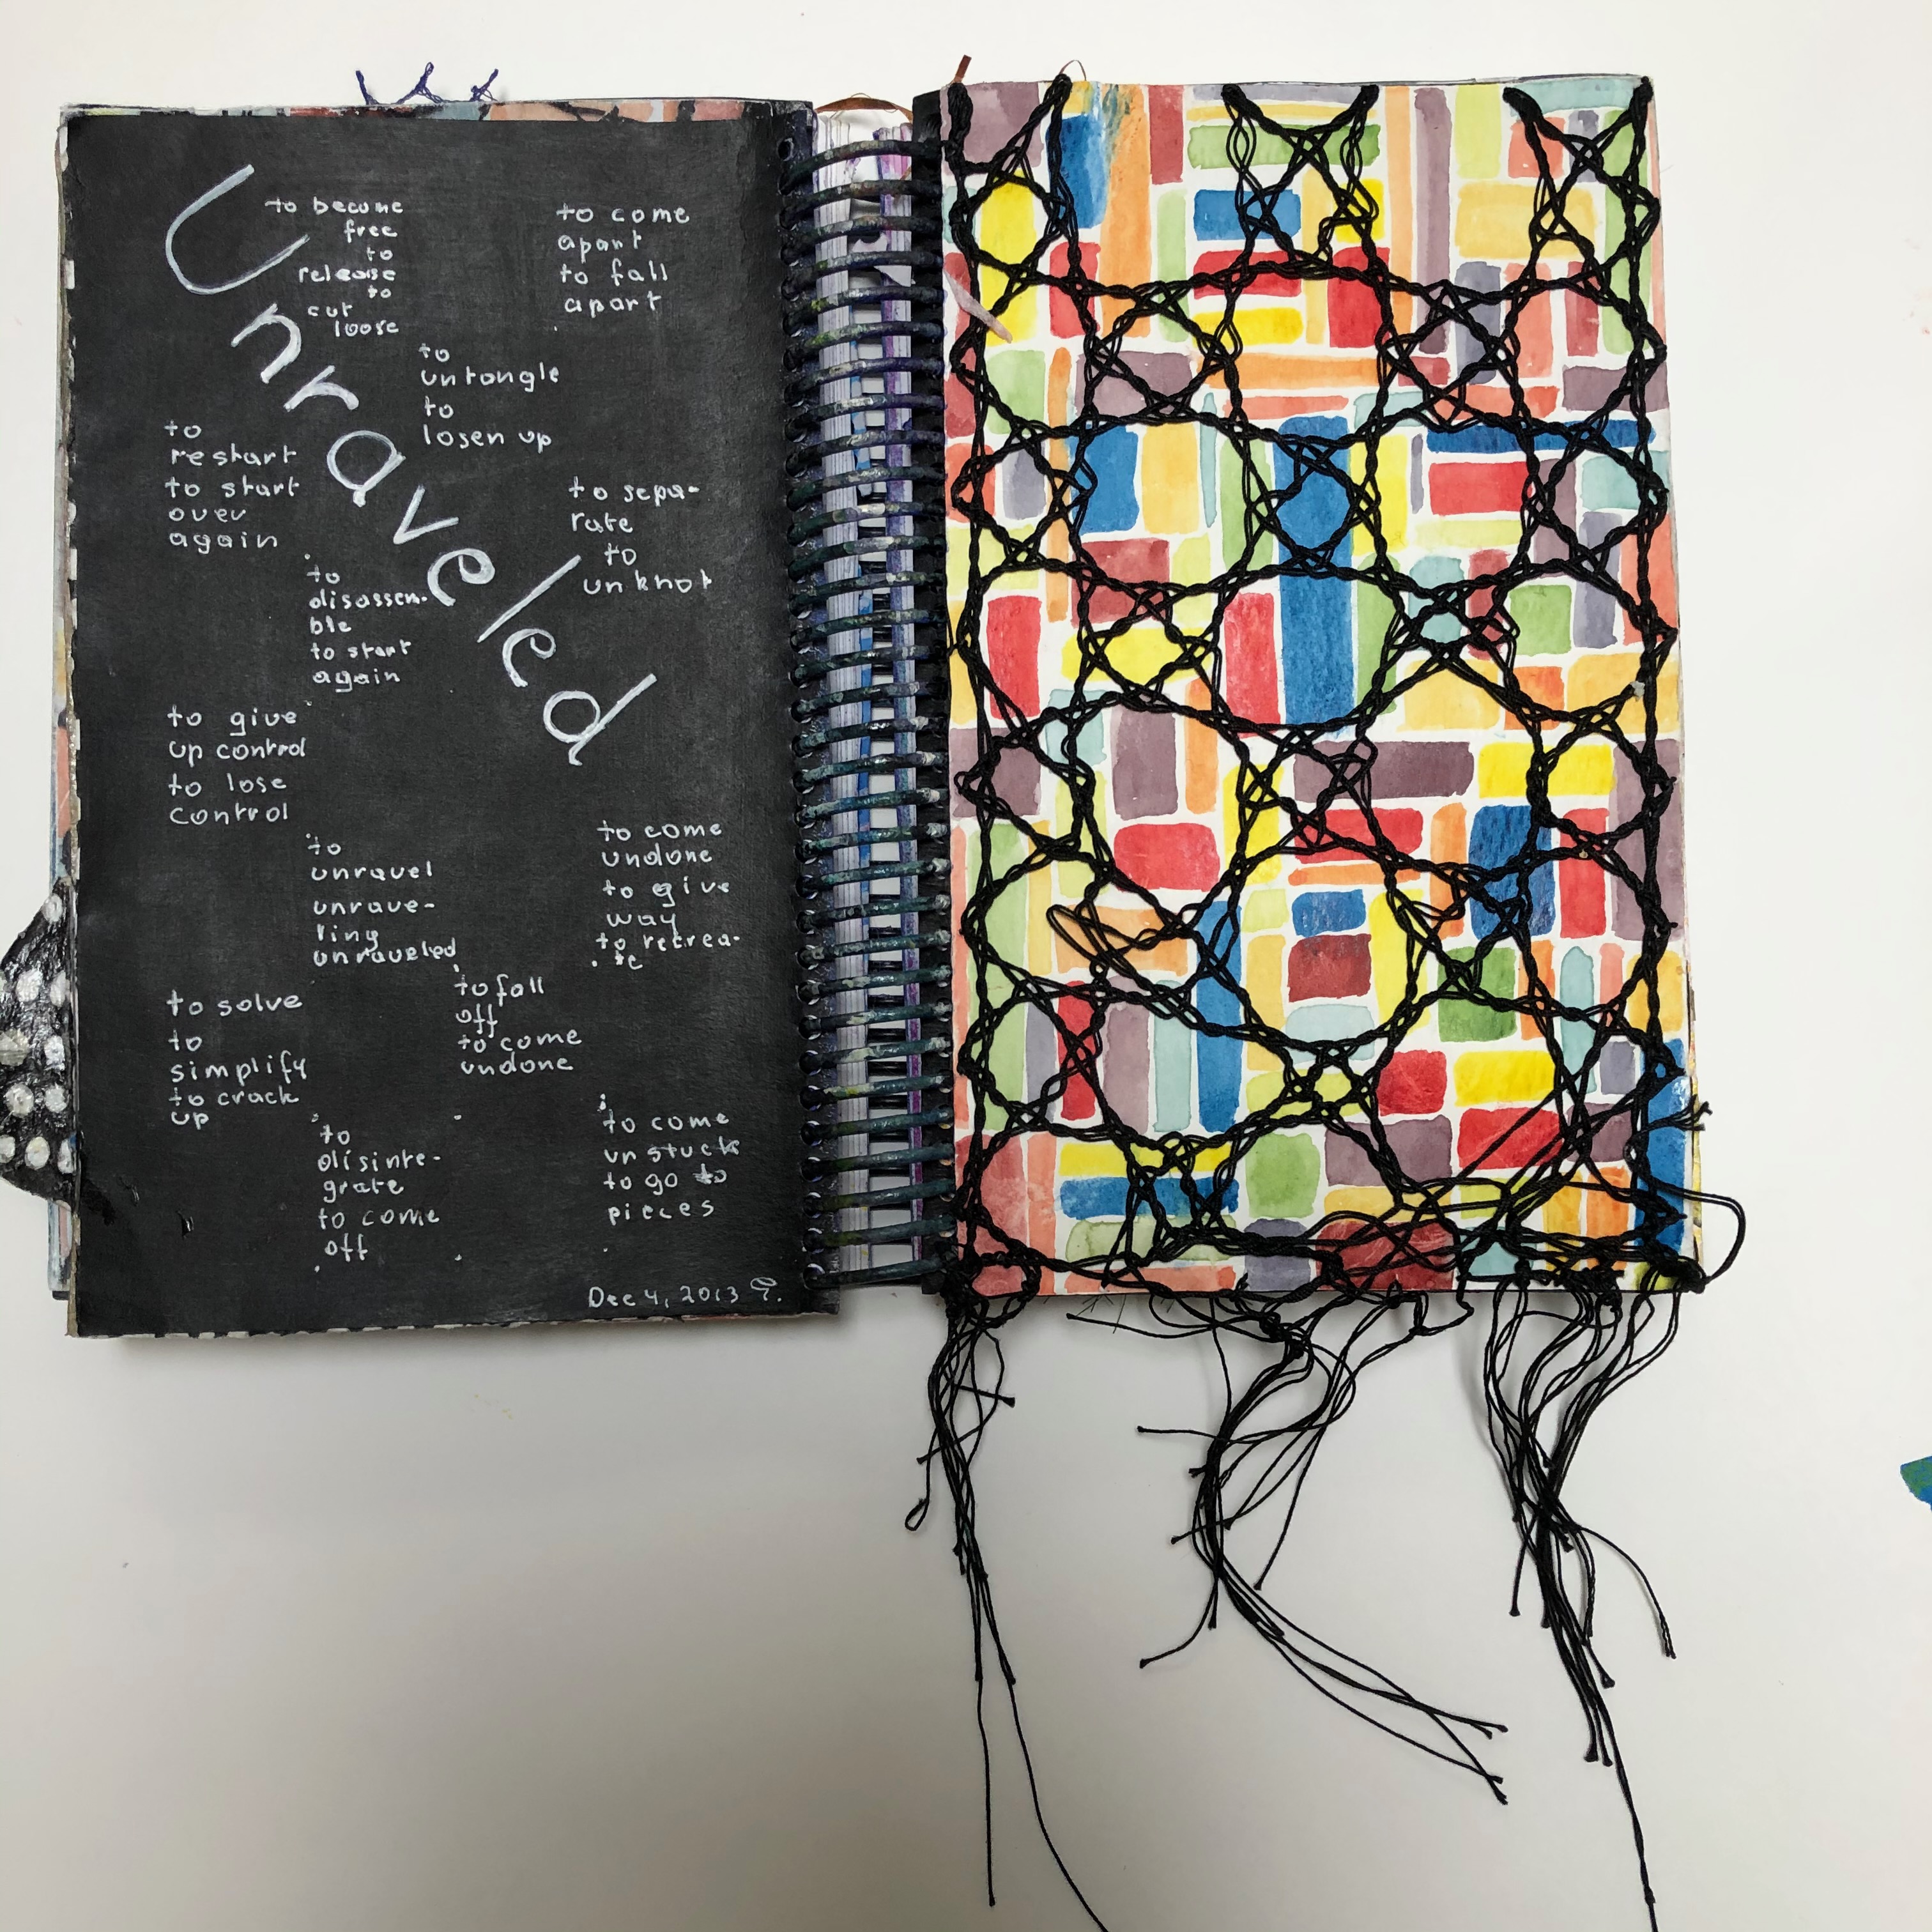 Unraveled
to become
free
to
release
to
cut
loose
to come
apart
to fall
apart
to
untangle
to
losen up
to
restart
to start
over
again
to sepa-
rate
to
unknot
to
disassem-
ble
to start
again
to give
up control
to lose
control
to
unravel
unrave-
ling
unraveled
to come
undone
to give
way
to recrea-
te
to solve
to
simplify
to crack
up
to fall
off
to come
undone
to
disinte-
grate
to come
off
to come
unstuck
to go to
pieces
Dec 4, 2013